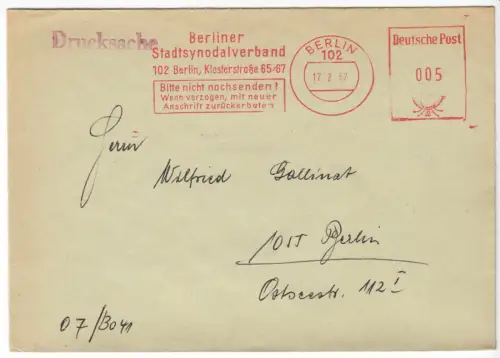 Drucksache
Berliner
Stadtsynodalverband
102 Berlin, Klosterstraße 65-67
Bitte nicht nachsenden!
Wenn verzogen, mit neuer
Anschrift zurückerbeten
BERLIN
102
17. 2. 67
Deutsche Post
005
Herrn
Wilfried Gollinat
1055 Berlin
Ostseestr. 112 I
07/3041